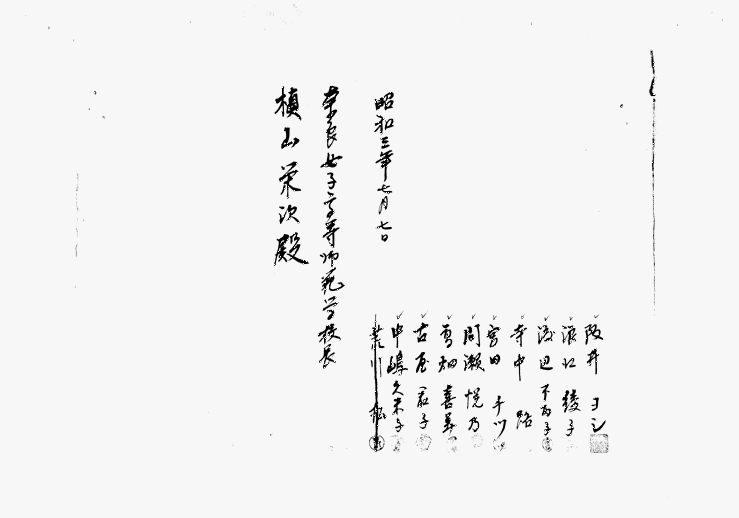 阪井ヨシ
浪江綾子
渡辺不二子
寺中路
宮田千代
間瀬悦乃
葛畑喜美
古屋君子
中嶋久米子
荒川松
昭和三年七月七日
奈良女子高等師範学校長
槇山栄次殿